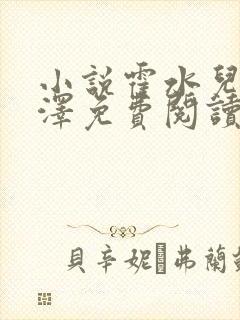 小說霍水兒
澤免費閱讀
貝辛妮 弗蘭